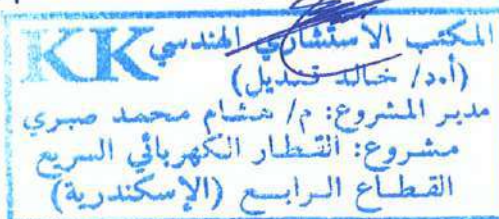 المكتب الأستشاري الهندسي KK
(أ.د/ خالد قنديل)
مدير المشروع: م/ هشام محمد صبري
مشروع: القطار الكهربائي السريع
القطاع الرابع (الإسكندرية)